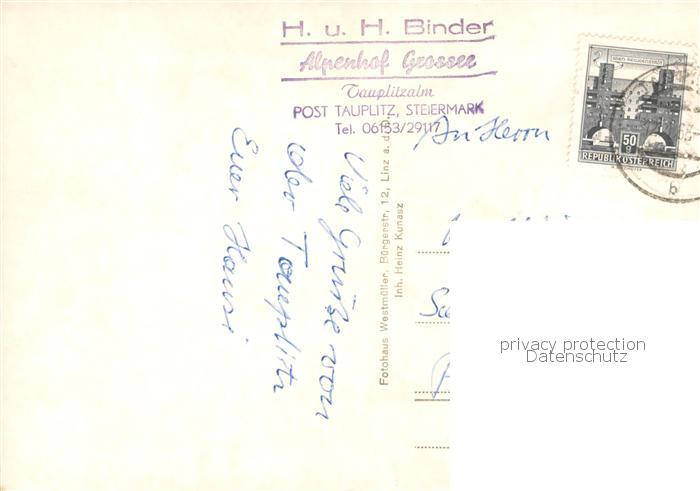 H. u. H. Binder
Alpenhof Grossee
Tauplitzalm
POST TAUPLITZ, STEIERMARK
Tel. 06153/29117
WIEN-HEILIGENSTADT
50
g
REPUBLIK ÖSTERREICH
b
An Herrn
Viele Grüße von
der Tauplitz
Euer Hansi
Fotohaus Westmüller, Bürgerstr. 12, Linz a. d. D.
Inh. Heinz Kunasz
privacy protection
Datenschutz